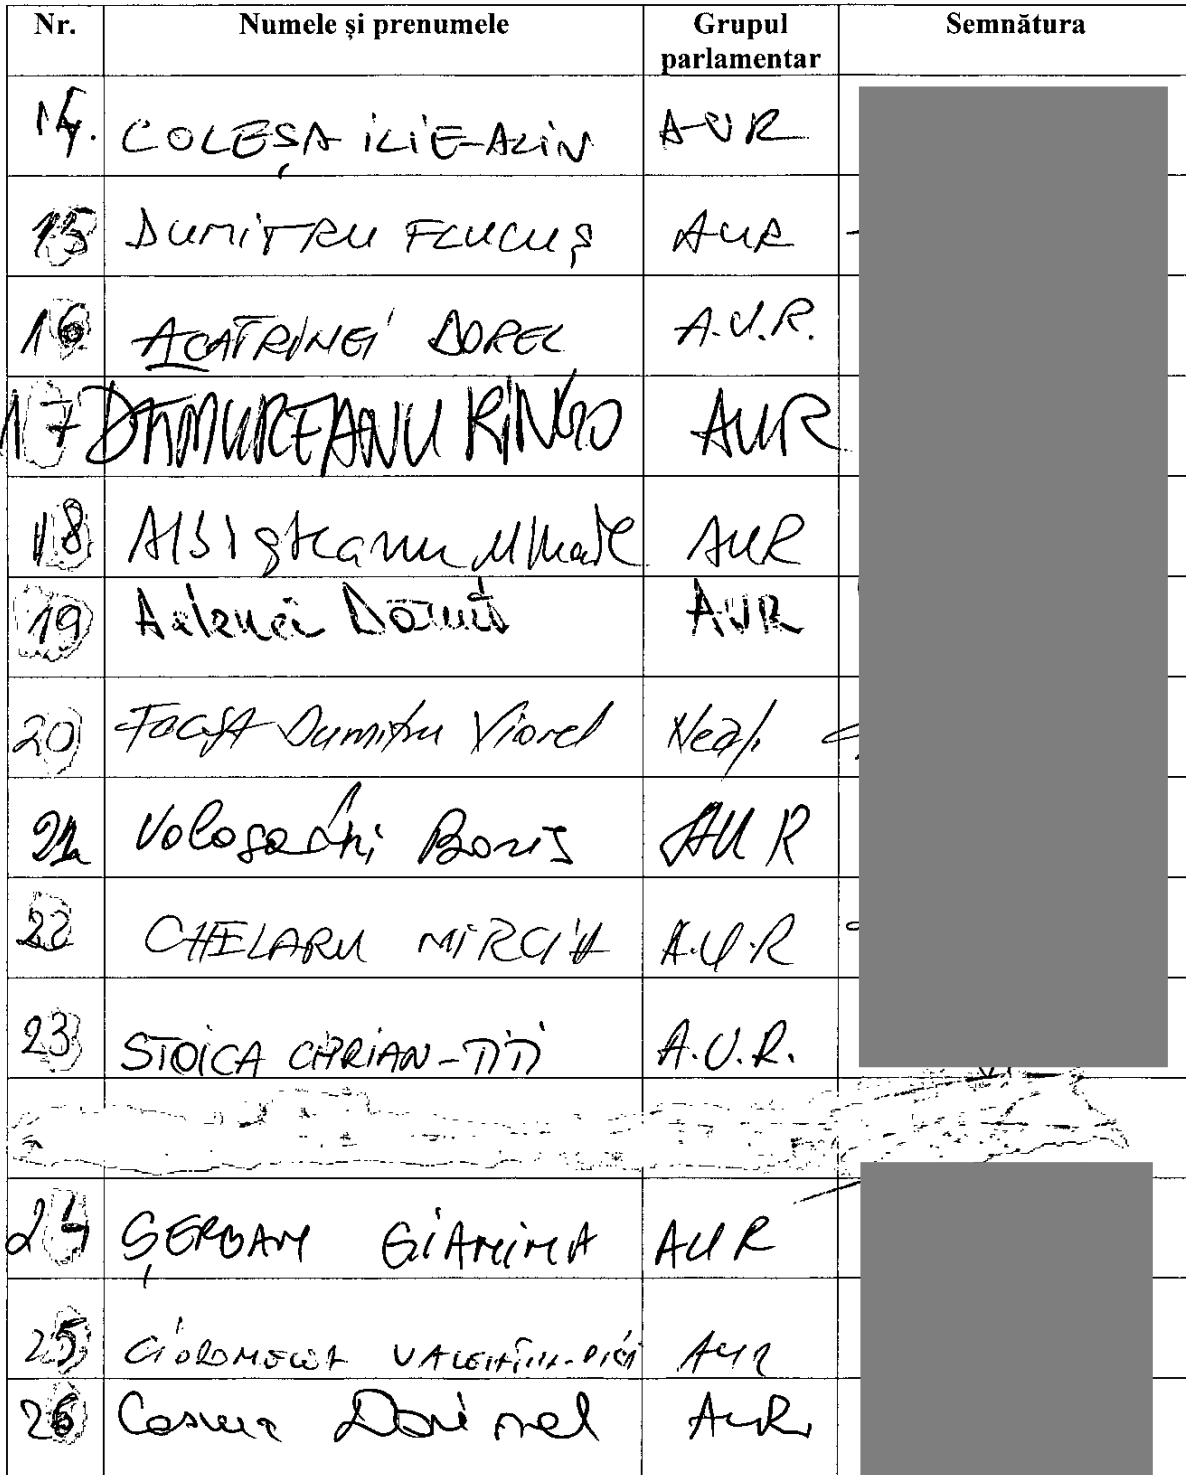 Nr. Numele și prenumele Grupul parlamentar Semnătura
14. COLEȘA ILIE-ALIN AUR
15 DUMITRU FLUCUȘ AUR
16 ACATRINEI DOREL A.U.R.
17 DĂMUREANU RINGO AUR
18 Albișteanu Mihail AUR
19 AUR
20 Focșa Dumitru Viorel Neaf.
21 Vologodschi Boris AUR
22 CHELARU MIRCEA A.U.R
23 STOICA CIPRIAN-TITI A.U.R.
24 ȘERBAN GIANINA AUR
25 CIOROMELEA VALENTINA-DICA AUR
26 Cosma Dorinel AUR